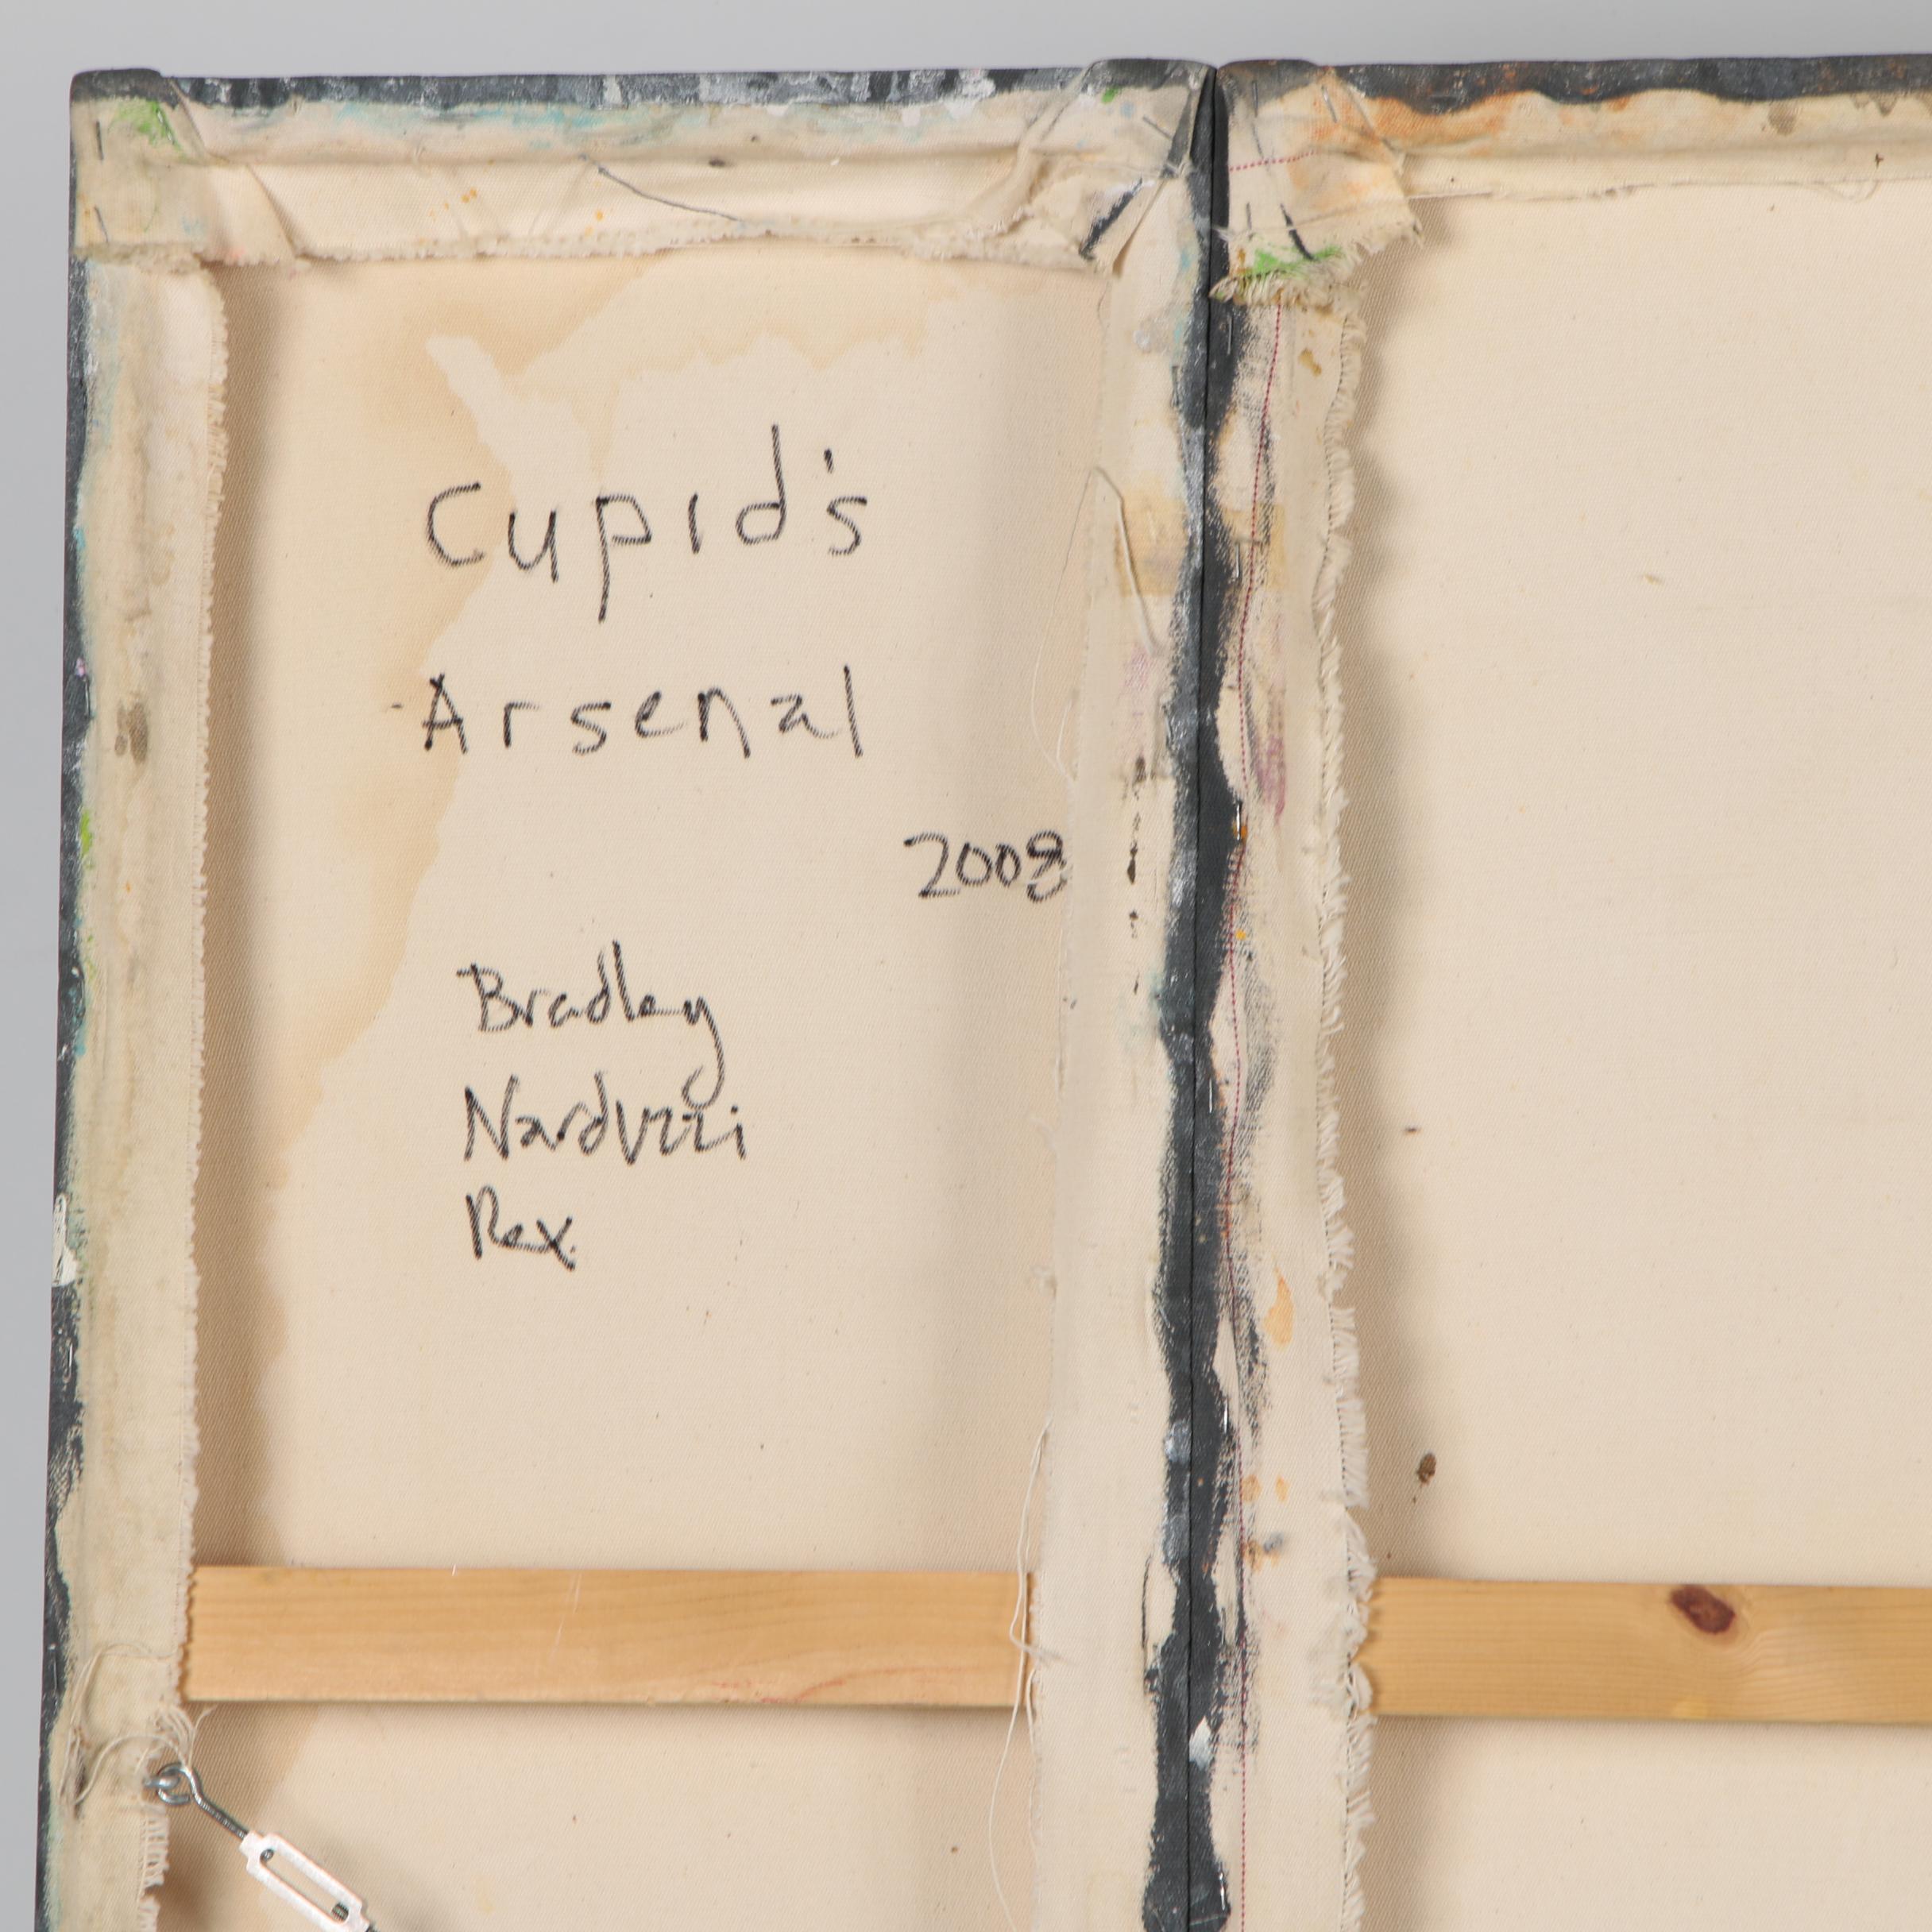 Cupid's
Arsenal
2008
Bradley
Narduzzi
Rex